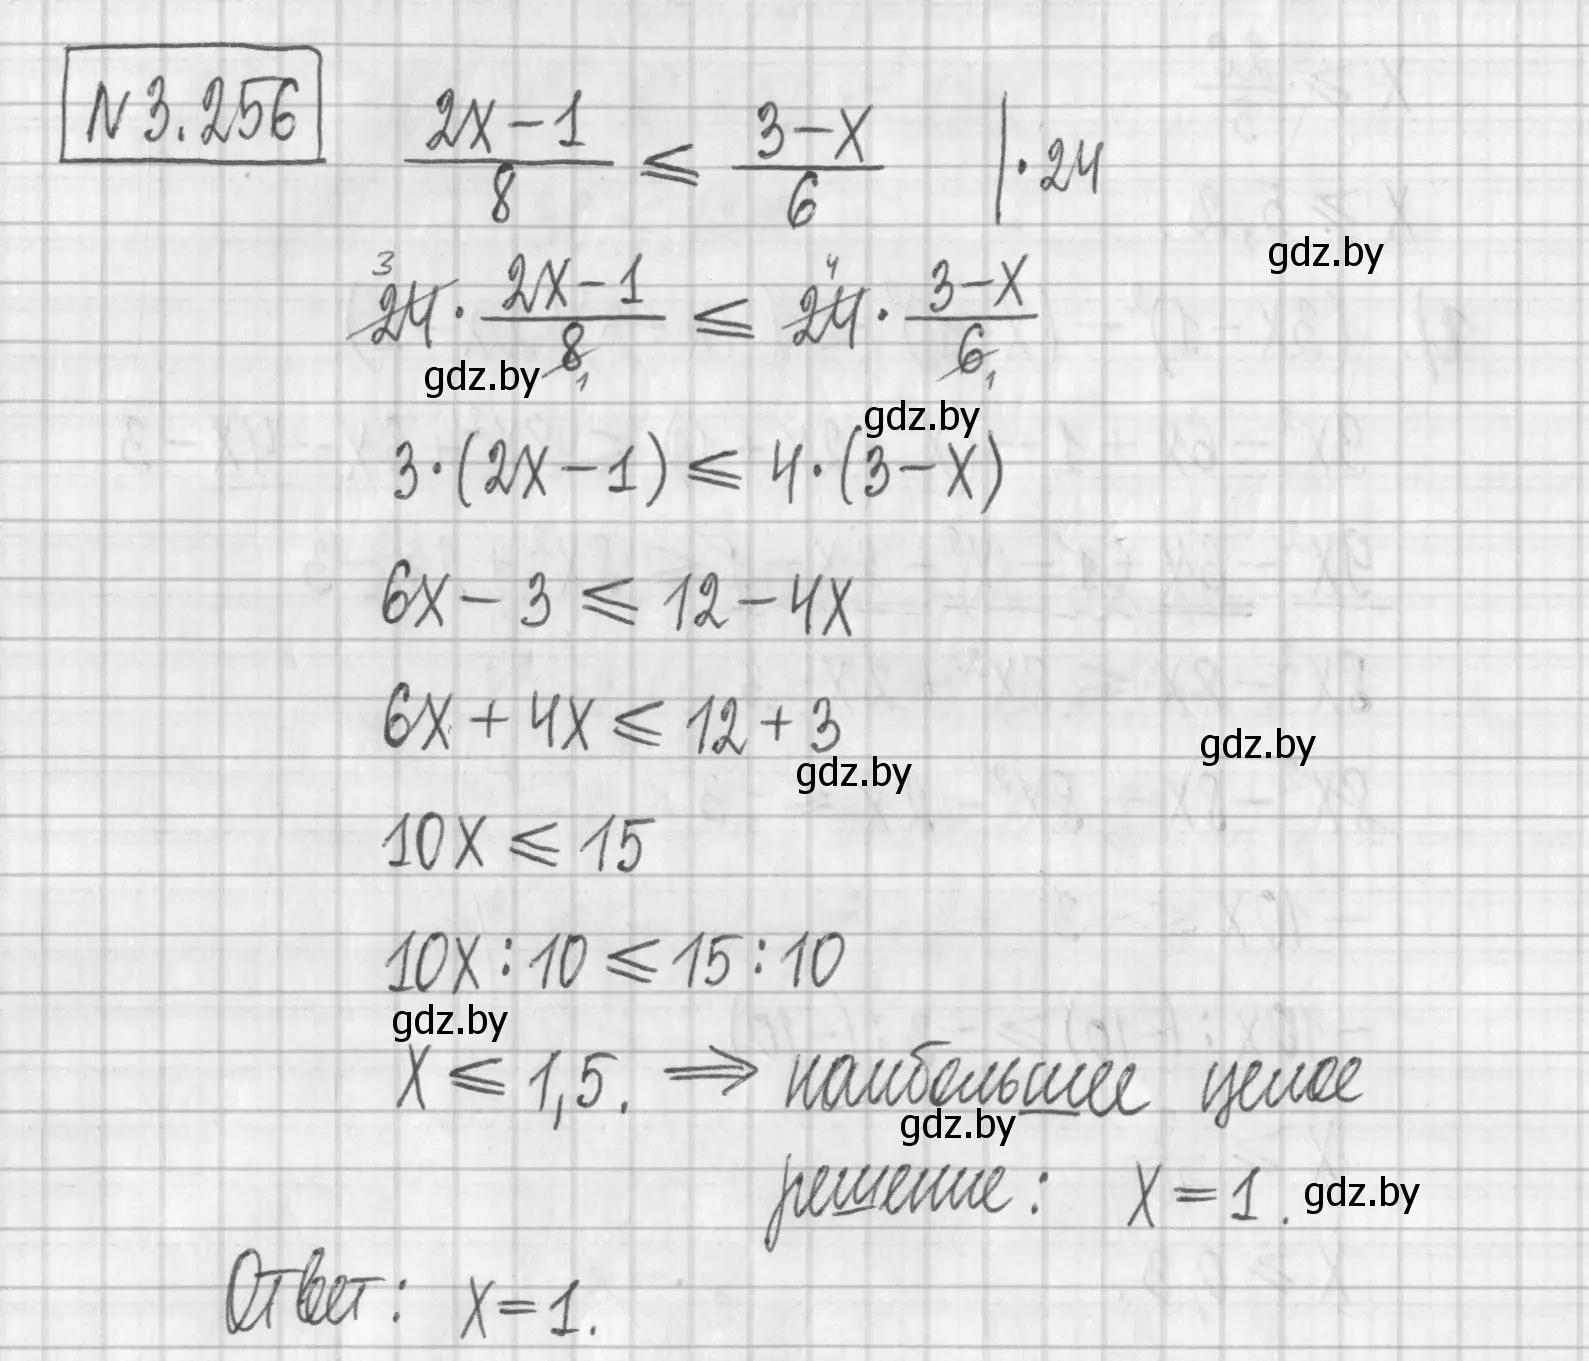 N 3.256  (2x-1)/8 ⩽ (3-x)/6  | · 24
gdz.by
³24 · (2x-1)/8₁ ⩽ ⁴24 · (3-x)/6₁
gdz.by
gdz.by
3 · (2x-1) ⩽ 4 · (3-x)
6x - 3 ⩽ 12 - 4x
6x + 4x ⩽ 12 + 3
gdz.by
gdz.by
10x ⩽ 15
10x : 10 ⩽ 15 : 10
gdz.by
x ⩽ 1,5. ⇒ наибольшее целое
gdz.by
решение: x = 1.
gdz.by
Ответ: x = 1.